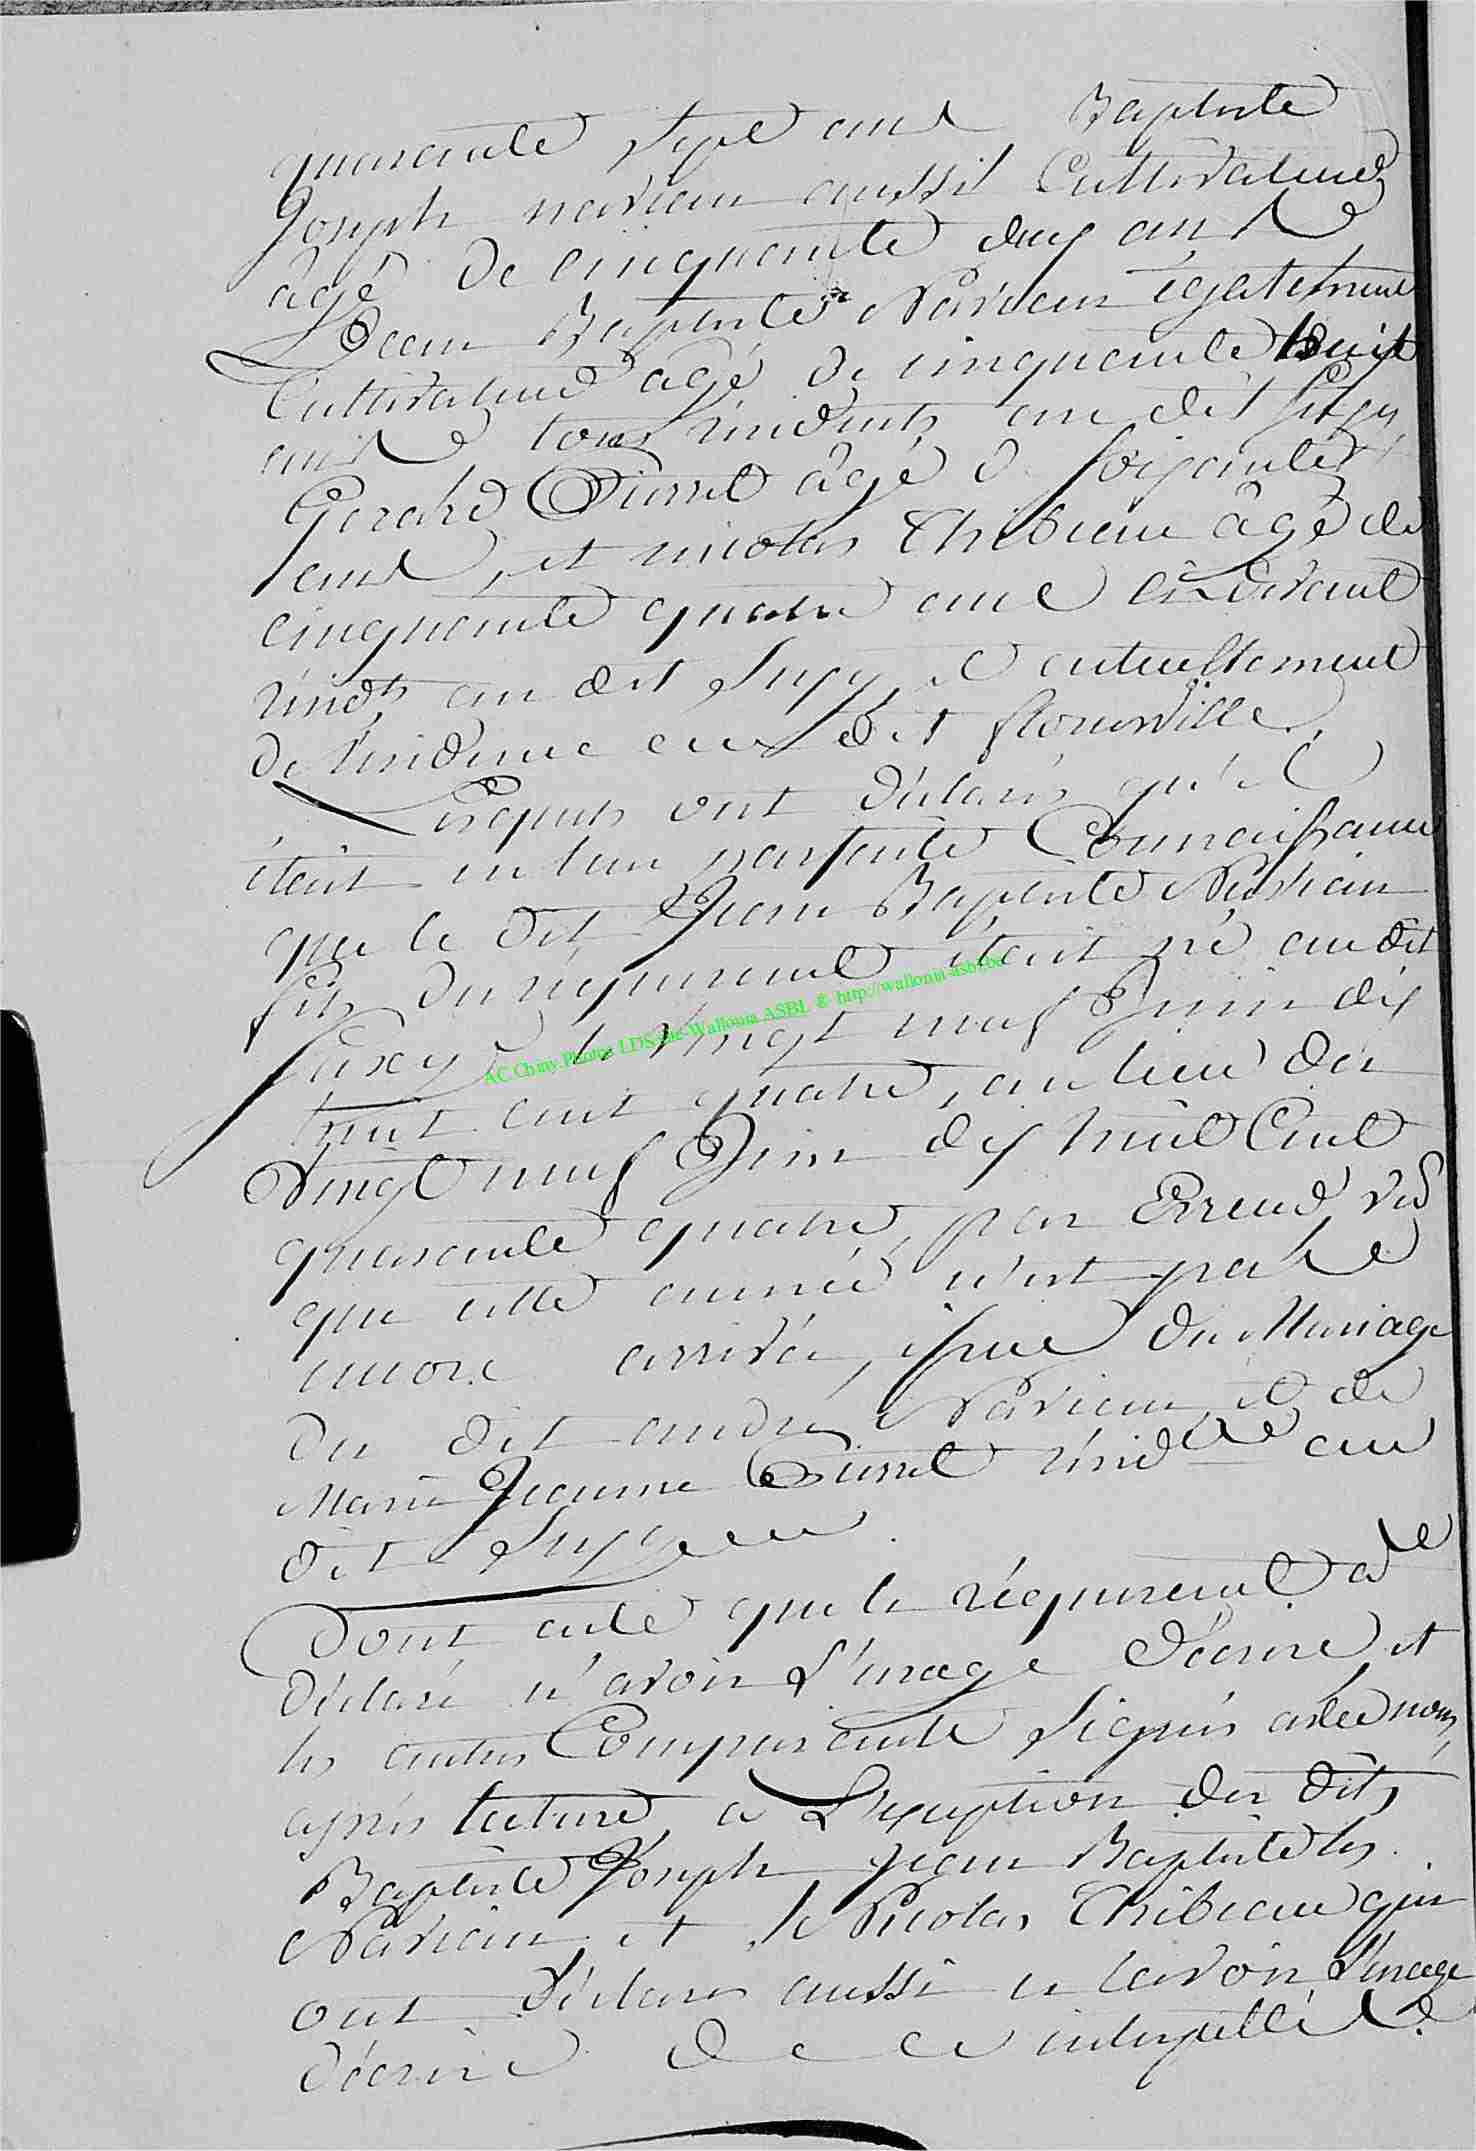 quarante sept ans Baptiste
Joseph naviau aussi Cultivateur
âgé de cinquante deux ans
Jean Baptiste Naviau également
Cultivateur âgé de cinquante huit
ans tous résidents au dit Suxy
Gerard âgé de soixante
ans, et nicolas Thibeau âgé de
cinquante quatre ans ci devant
résidt au dit Suxy et actuellement
de résidence au dit florenville,
Lesquels ont déclarés qu'il
était en leur parfaite Connaissance
que le dit Jean Baptiste Naviau
fils du requerent était né au dit
Suxy le vingt neuf Juin dix
huit cent quatre, au lieu du
vingt neuf Juin dix huit Cent
quarante quatre, par Erreur vu
que cette année n'est pas
encore arrivée, issue du Mariage
du dit andré Naviau et de
Marie Jeanne résidte au
dit Suxy
Dont acte que le réquerent a
déclaré n'avoir L'usage d'écrire, et
les autres Comparants signés avec nous,
après lecture, a L'exception des dits
Baptiste Joseph Jean Baptiste les
Naviau, et le Nicolas Thibeau qui
ont déclarés aussi n'avoir L'usage
d'écrire de ce interpellés
AC Chiny Photos LDS the Wallonia ASBL & http://wallonia-asbl.be